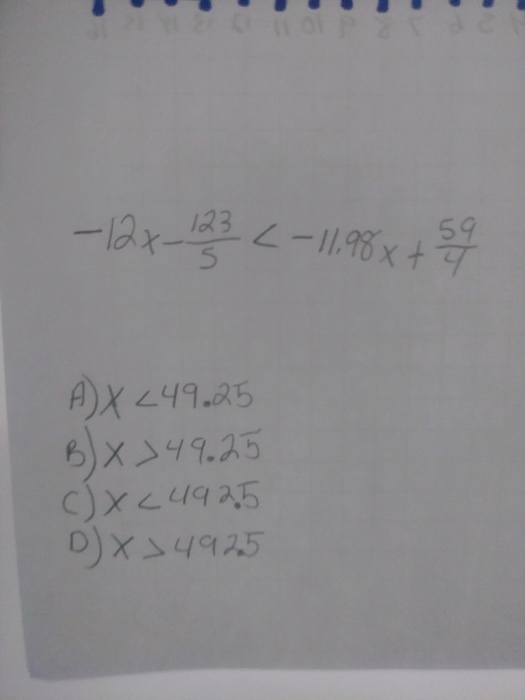 -12x - 123/5 < -11.98x + 59/4
A) x < 49.25
B) x > 49.25
C) x < 492.5
D) x > 492.5